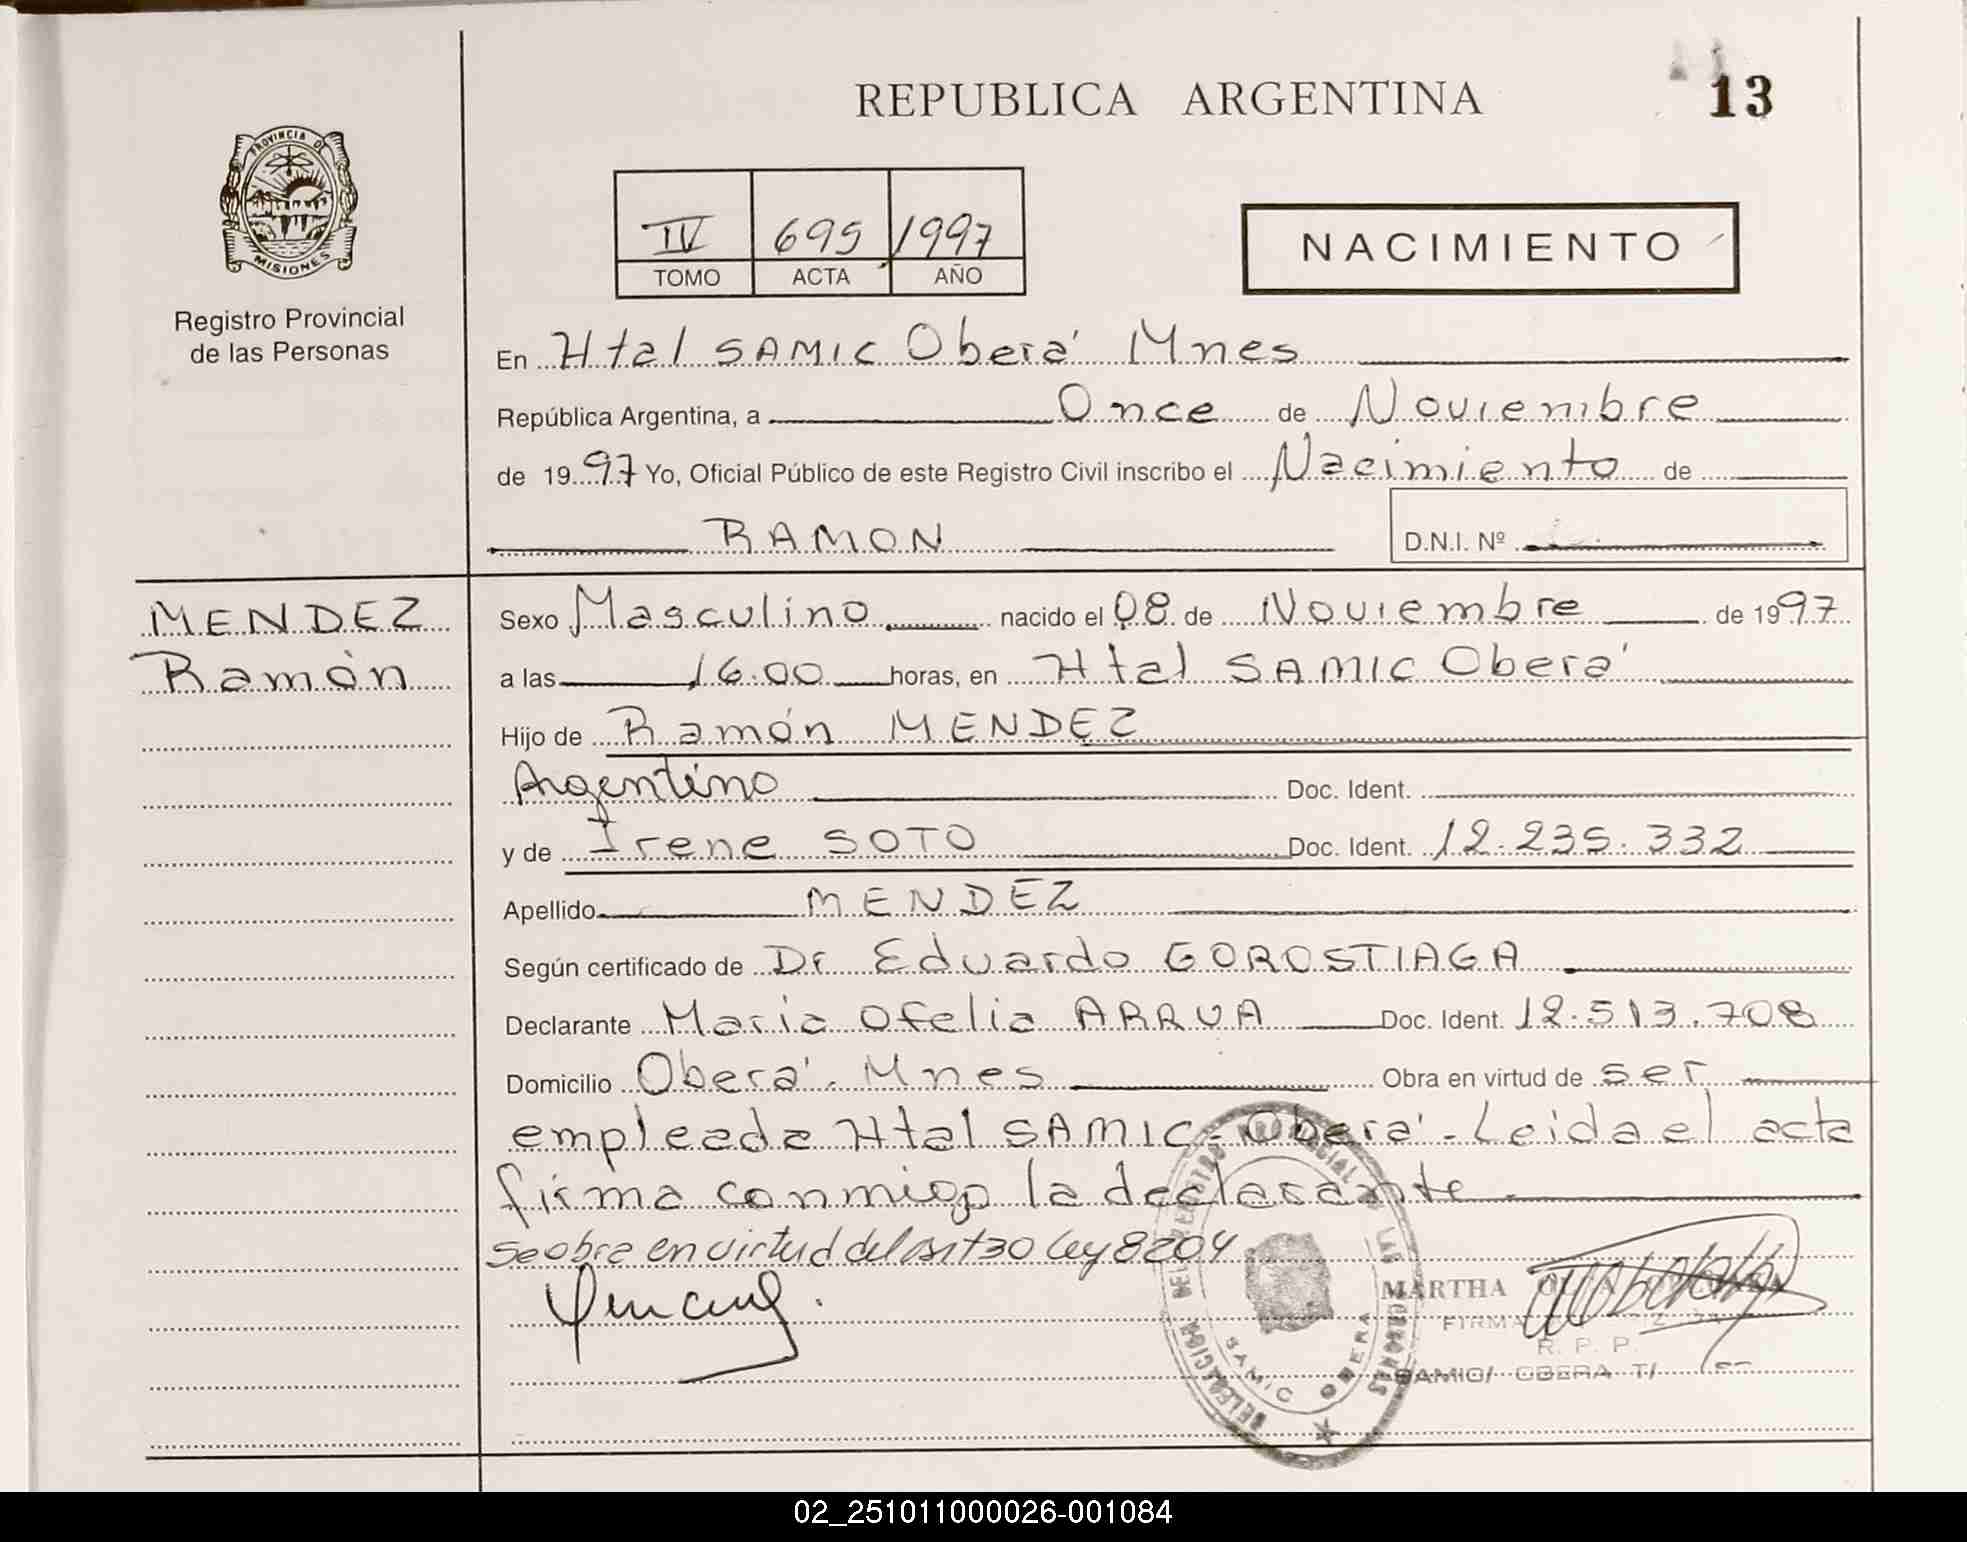 REPUBLICA ARGENTINA
13
PROVINCIA DE
MISIONES
Registro Provincial
de las Personas
IV 695 1997
TOMO ACTA AÑO
NACIMIENTO
En Htal SAMIC Oberá Mnes
República Argentina, a Once de Noviembre
de 1997 Yo, Oficial Público de este Registro Civil inscribo el Nacimiento de
RAMON
D.N.I. Nº
MENDEZ
Ramón
Sexo Masculino nacido el 08 de Noviembre de 1997
a las 16.00 horas, en Htal SAMIC Oberá
Hijo de Ramón MENDEZ
Argentino Doc. Ident.
y de Irene SOTO Doc. Ident. 12.235.332
Apellido MENDEZ
Según certificado de Dr Eduardo GOROSTIAGA
Declarante Maria Ofelia ARRUA Doc. Ident. 12.513.708
Domicilio Oberá - Mnes Obra en virtud de ser
empleada Htal SAMIC - Oberá - Leida el acta
firma conmigo la declarante
Se obra en virtud del art 30 Ley 8204
MARTHA
FIRMA
R. P. P.
SAMIC/ OBERA T/
DELEGACION DEL REGISTRO PROVINCIAL DE LAS PERSONAS
SAMIC OBERA
02_251011000026-001084